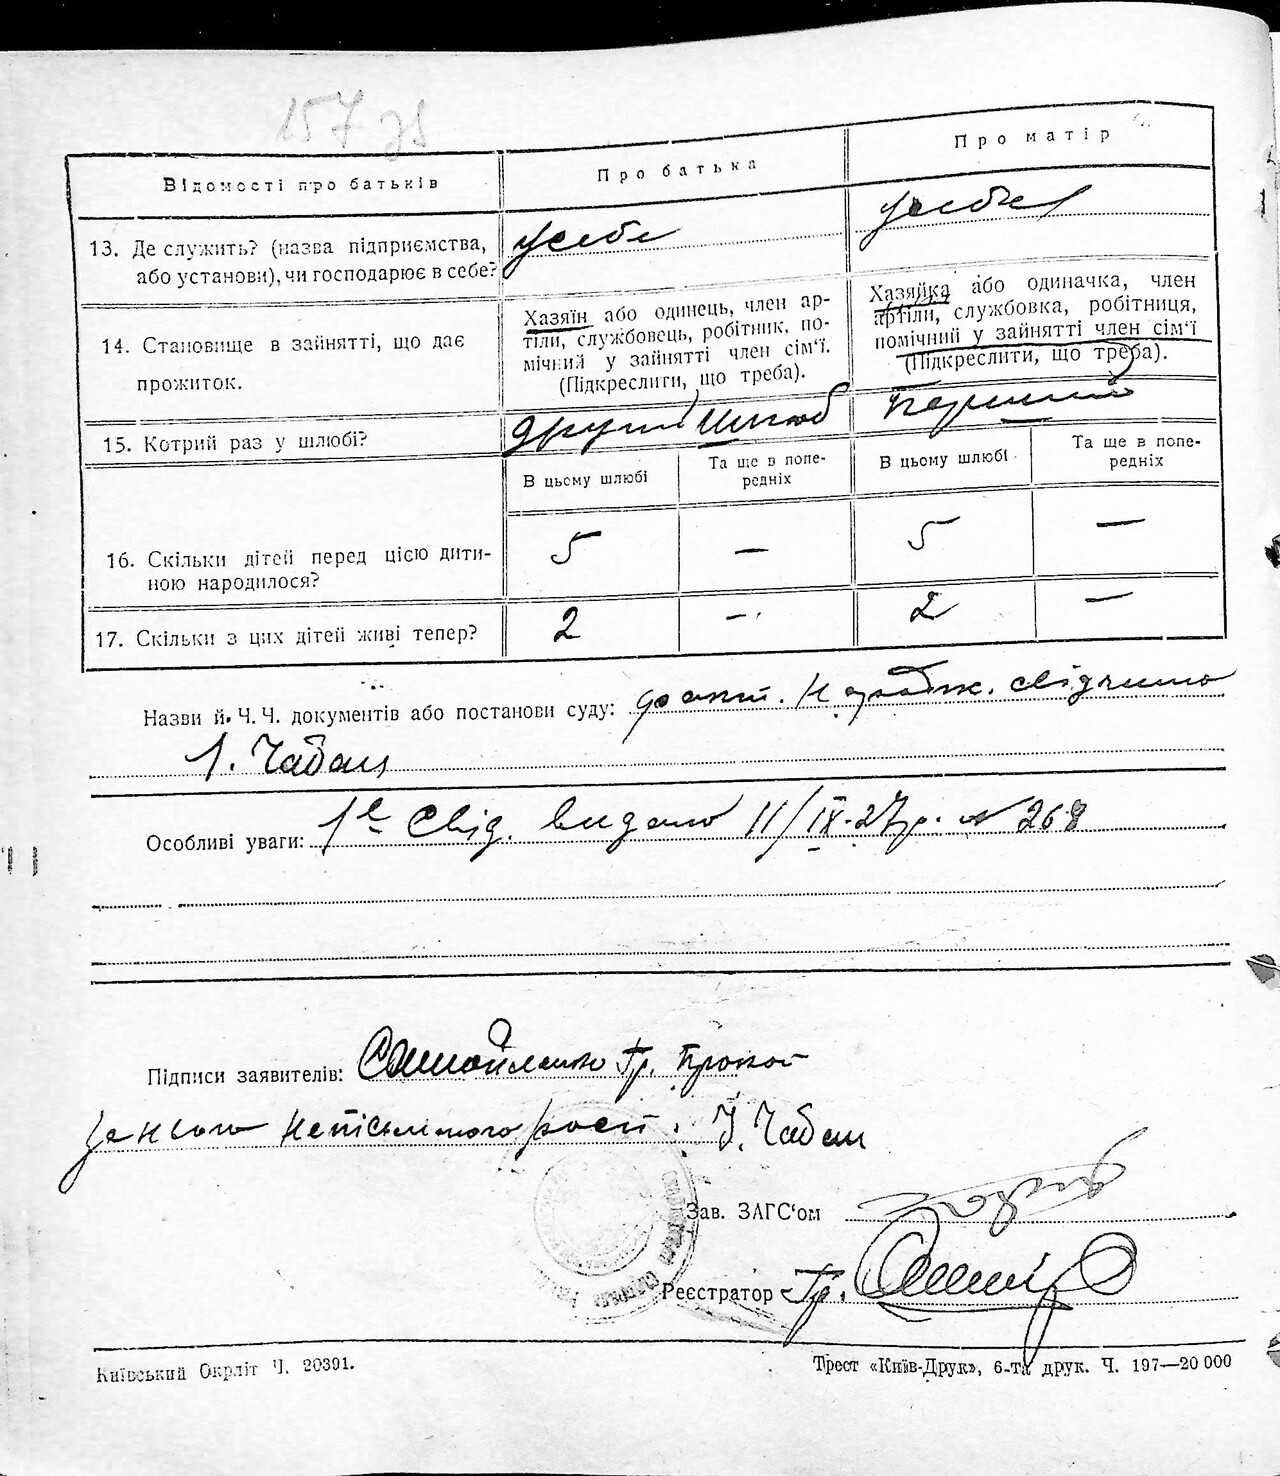 157 зв
Відомості про батьків
Про батька
Про матір
13. Де служить? (назва підприємства, або установи), чи господарює в себе?
у себе
у себе
14. Становище в зайнятті, що дає прожиток.
Хазяїн або одинець, член ар-
тіли, службовець, робітник, по-
мічний у зайнятті член сім'ї.
(Підкреслити, що треба).
Хазяйка або одиначка, член
артіли, службовка, робітниця,
помічний у зайнятті член сім'ї
(Підкреслити, що треба).
15. Котрий раз у шлюбі?
другий шлюб
Перший
В цьому шлюбі
Та ще в попе-
редніх
В цьому шлюбі
Та ще в попе-
редніх
16. Скільки дітей перед цією дити-
ною народилося?
5
—
5
—
17. Скільки з цих дітей живі тепер?
2
—
2
—
Назви й Ч. Ч. документів або постанови суду: факт. народж. свідчить
Чабан
Особливі уваги: Свід. видано 11/IX-27р. № 268
Підписи заявителів: Самойленко Гр.
неписьменого розп. Чабан
Зав. ЗАГС'ом
Реєстратор Гр.
Київський Окрліт Ч. 20391.
Трест «Київ-Друк», 6-та друк. Ч. 197—20 000